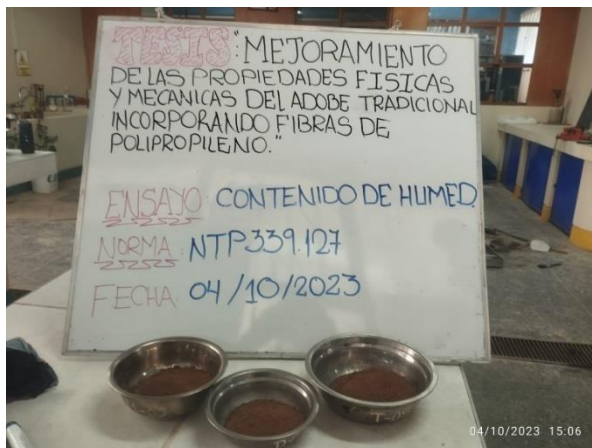 TESIS: "MEJORAMIENTO
DE LAS PROPIEDADES FISICAS
Y MECANICAS DEL ADOBE TRADICIONAL
INCORPORANDO FIBRAS DE
POLIPROPILENO."
ENSAYO: CONTENIDO DE HUMED.
NORMA: NTP339.127
FECHA: 04/10/2023
04/10/2023 15:06